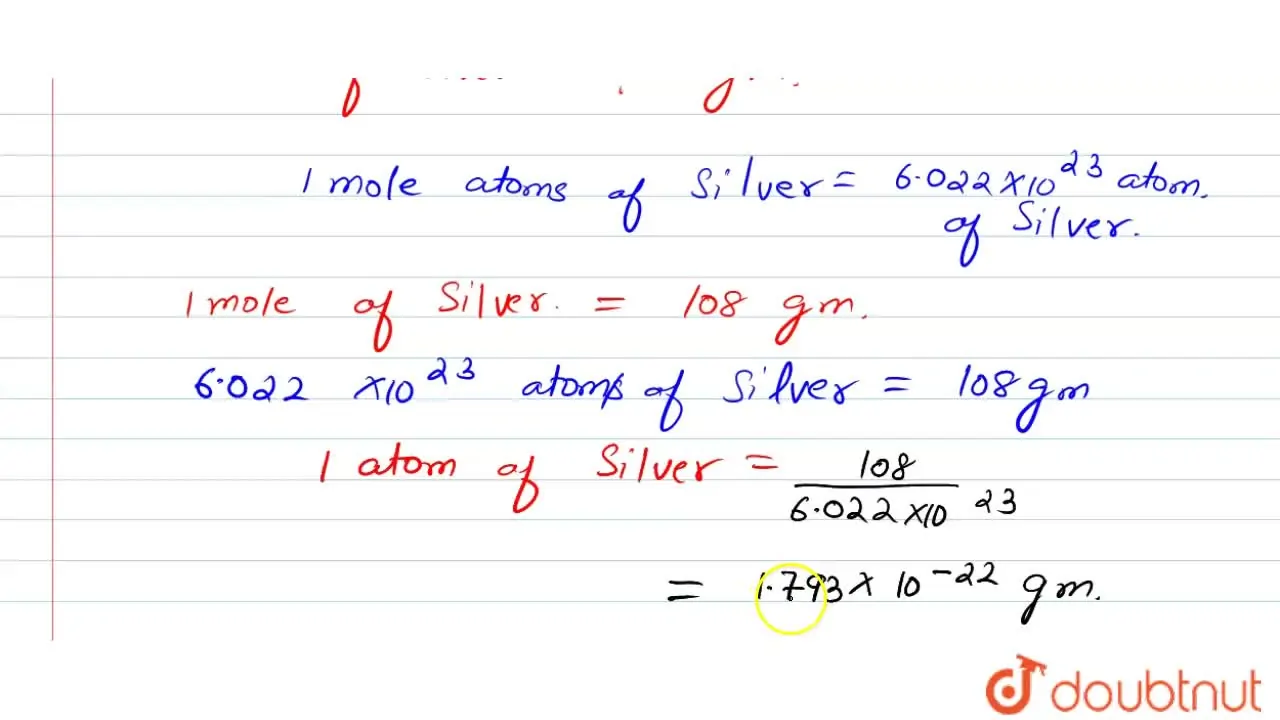 of
1 mole atoms of Silver = 6.022×10²³ atom.
of Silver.
1 mole of Silver. = 108 gm.
6.022 ×10²³ atoms of Silver = 108 gm
1 atom of Silver = 108
6.022×10²³
= 1.793× 10⁻²² gm.
doubtnut